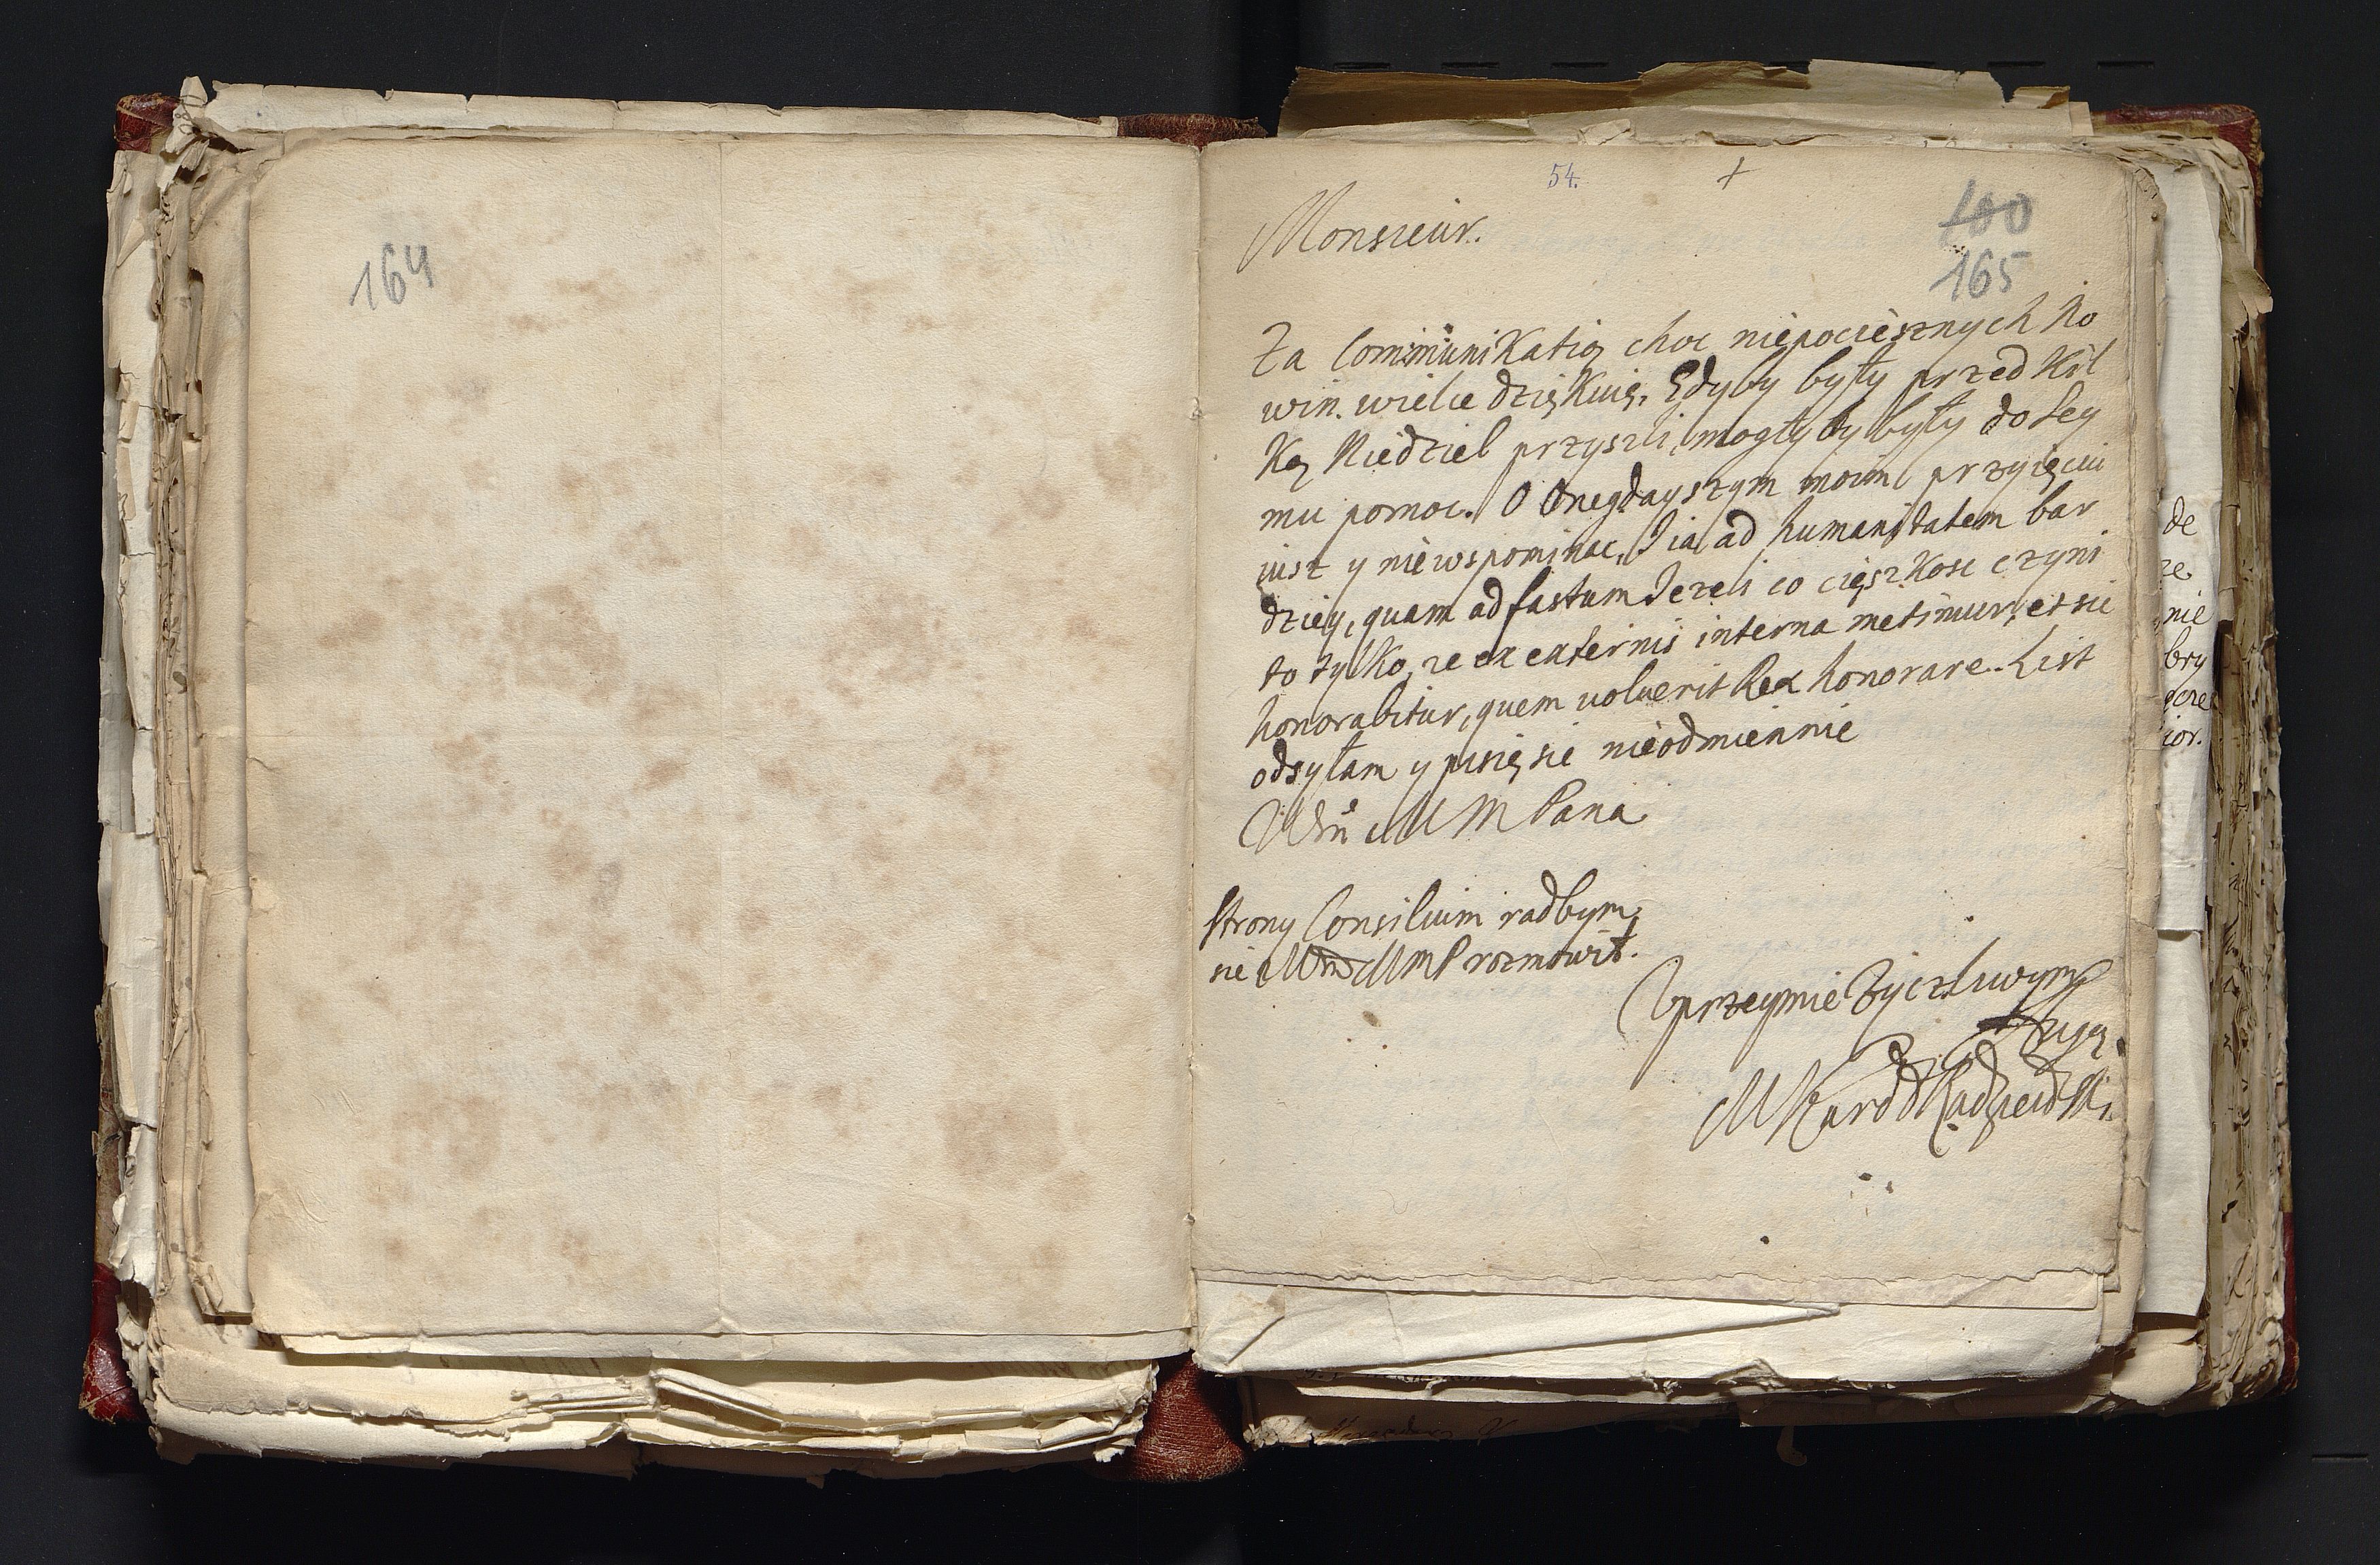 164
54. +
100
165
Monsieur.
Za Communikatią choc niepociesznych No
win. wielce dziękuię, Gdyby były przed Kil
Ką Niedziel przyszli, mogły by były do Sey
mu pomoc. O Onegdayszym moim przyięciu
iusz y niewspominac, J ia ad humanitatem bar
dziey, quam ad fastum Jezeli co cięszkosc czyni
to tylko, ze ex externis interna metimur, et sic
honorabitur, quem voluerit Rex honorare. List
odsyłam y piszę sie nieodmiennie
WM MM Pana
Strony Consilium radbym
sie MMP rozmowił.
Uprzeymie Zyczliwym
Sługą
M Kard Radzieiowski
de
ze
nie
bry
ior.